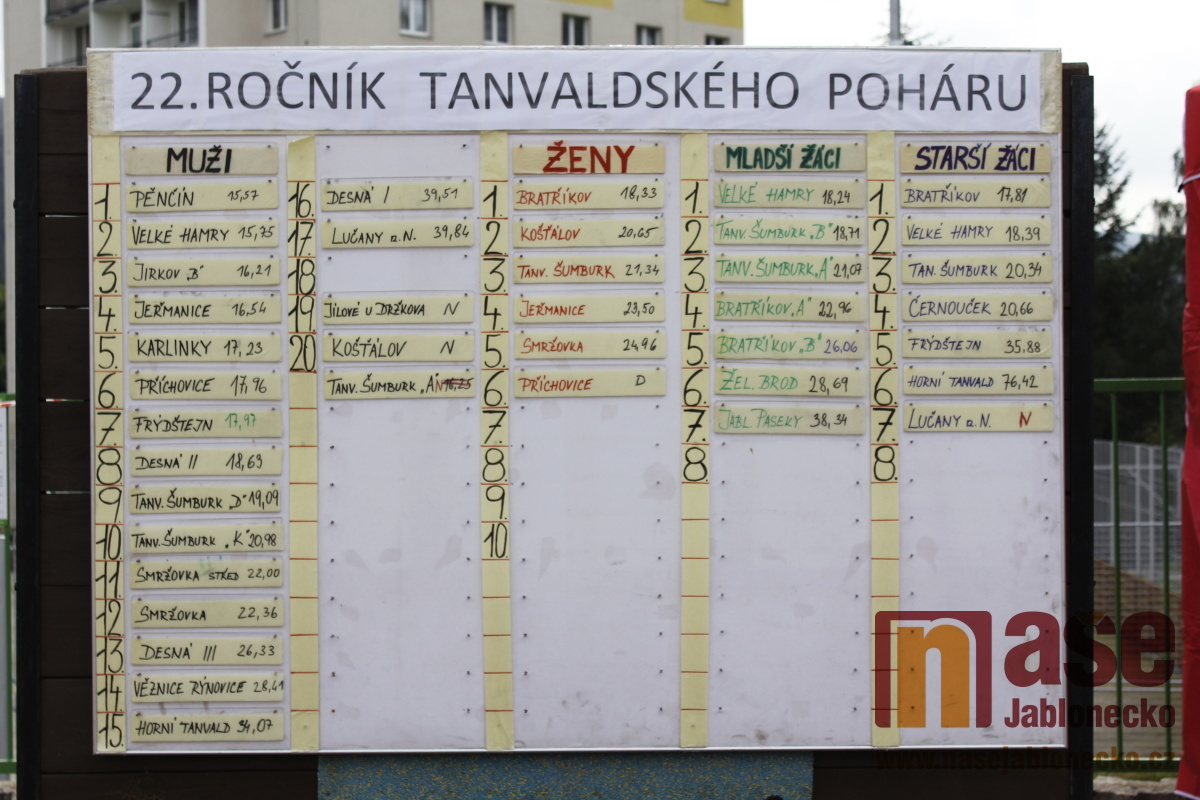 22. ROČNÍK TANVALDSKÉHO POHÁRU
MUŽI
1. PĚNČÍN 15,57
2. VELKÉ HAMRY 15,75
3. JIRKOV „B" 16,21
4. JEŘMANICE 16,54
5. KARLINKY 17,23
6. PŘÍCHOVICE 17,96
7. FRÝDŠTEJN 17,97
8. DESNÁ II 18,63
9. TANV. ŠUMBURK „D" 19,09
10. TANV. ŠUMBURK „K" 20,98
11. SMRŽOVKA STŘED 22,00
12. SMRŽOVKA 22,36
13. DESNÁ III 26,33
14. VĚŽNICE RÝNOVICE 28,41
15. HORNÍ TANVALD 34,07
16. DESNÁ I 39,51
17. LUČANY n.N. 39,84
18.
19. JÍLOVÉ U DRŽKOVA N
20. KOŠŤÁLOV N
TANV. ŠUMBURK „A" N
ŽENY
1. BRATŘÍKOV 18,33
2. KOŠŤÁLOV 20,65
3. TANV. ŠUMBURK 21,34
4. JEŘMANICE 23,50
5. SMRŽOVKA 24,96
6. PŘÍCHOVICE D
7.
8.
9.
10.
MLADŠÍ ŽÁCI
1. VELKÉ HAMRY 18,24
2. TANV. ŠUMBURK „B" 18,71
3. TANV. ŠUMBURK „A" 21,07
4. BRATŘÍKOV „A" 22,96
5. BRATŘÍKOV „B" 26,06
6. ŽEL. BROD 28,69
7. JABL. PASEKY 38,34
8.
STARŠÍ ŽÁCI
1. BRATŘÍKOV 17,81
2. VELKÉ HAMRY 18,39
3. TAN. ŠUMBURK 20,34
4. ČERNOUČEK 20,66
5. FRÝDŠTEJN 35,88
6. HORNÍ TANVALD 76,42
7. LUČANY n.N. N
8.
naše
Jablonecko
www.nasejablonecko.cz